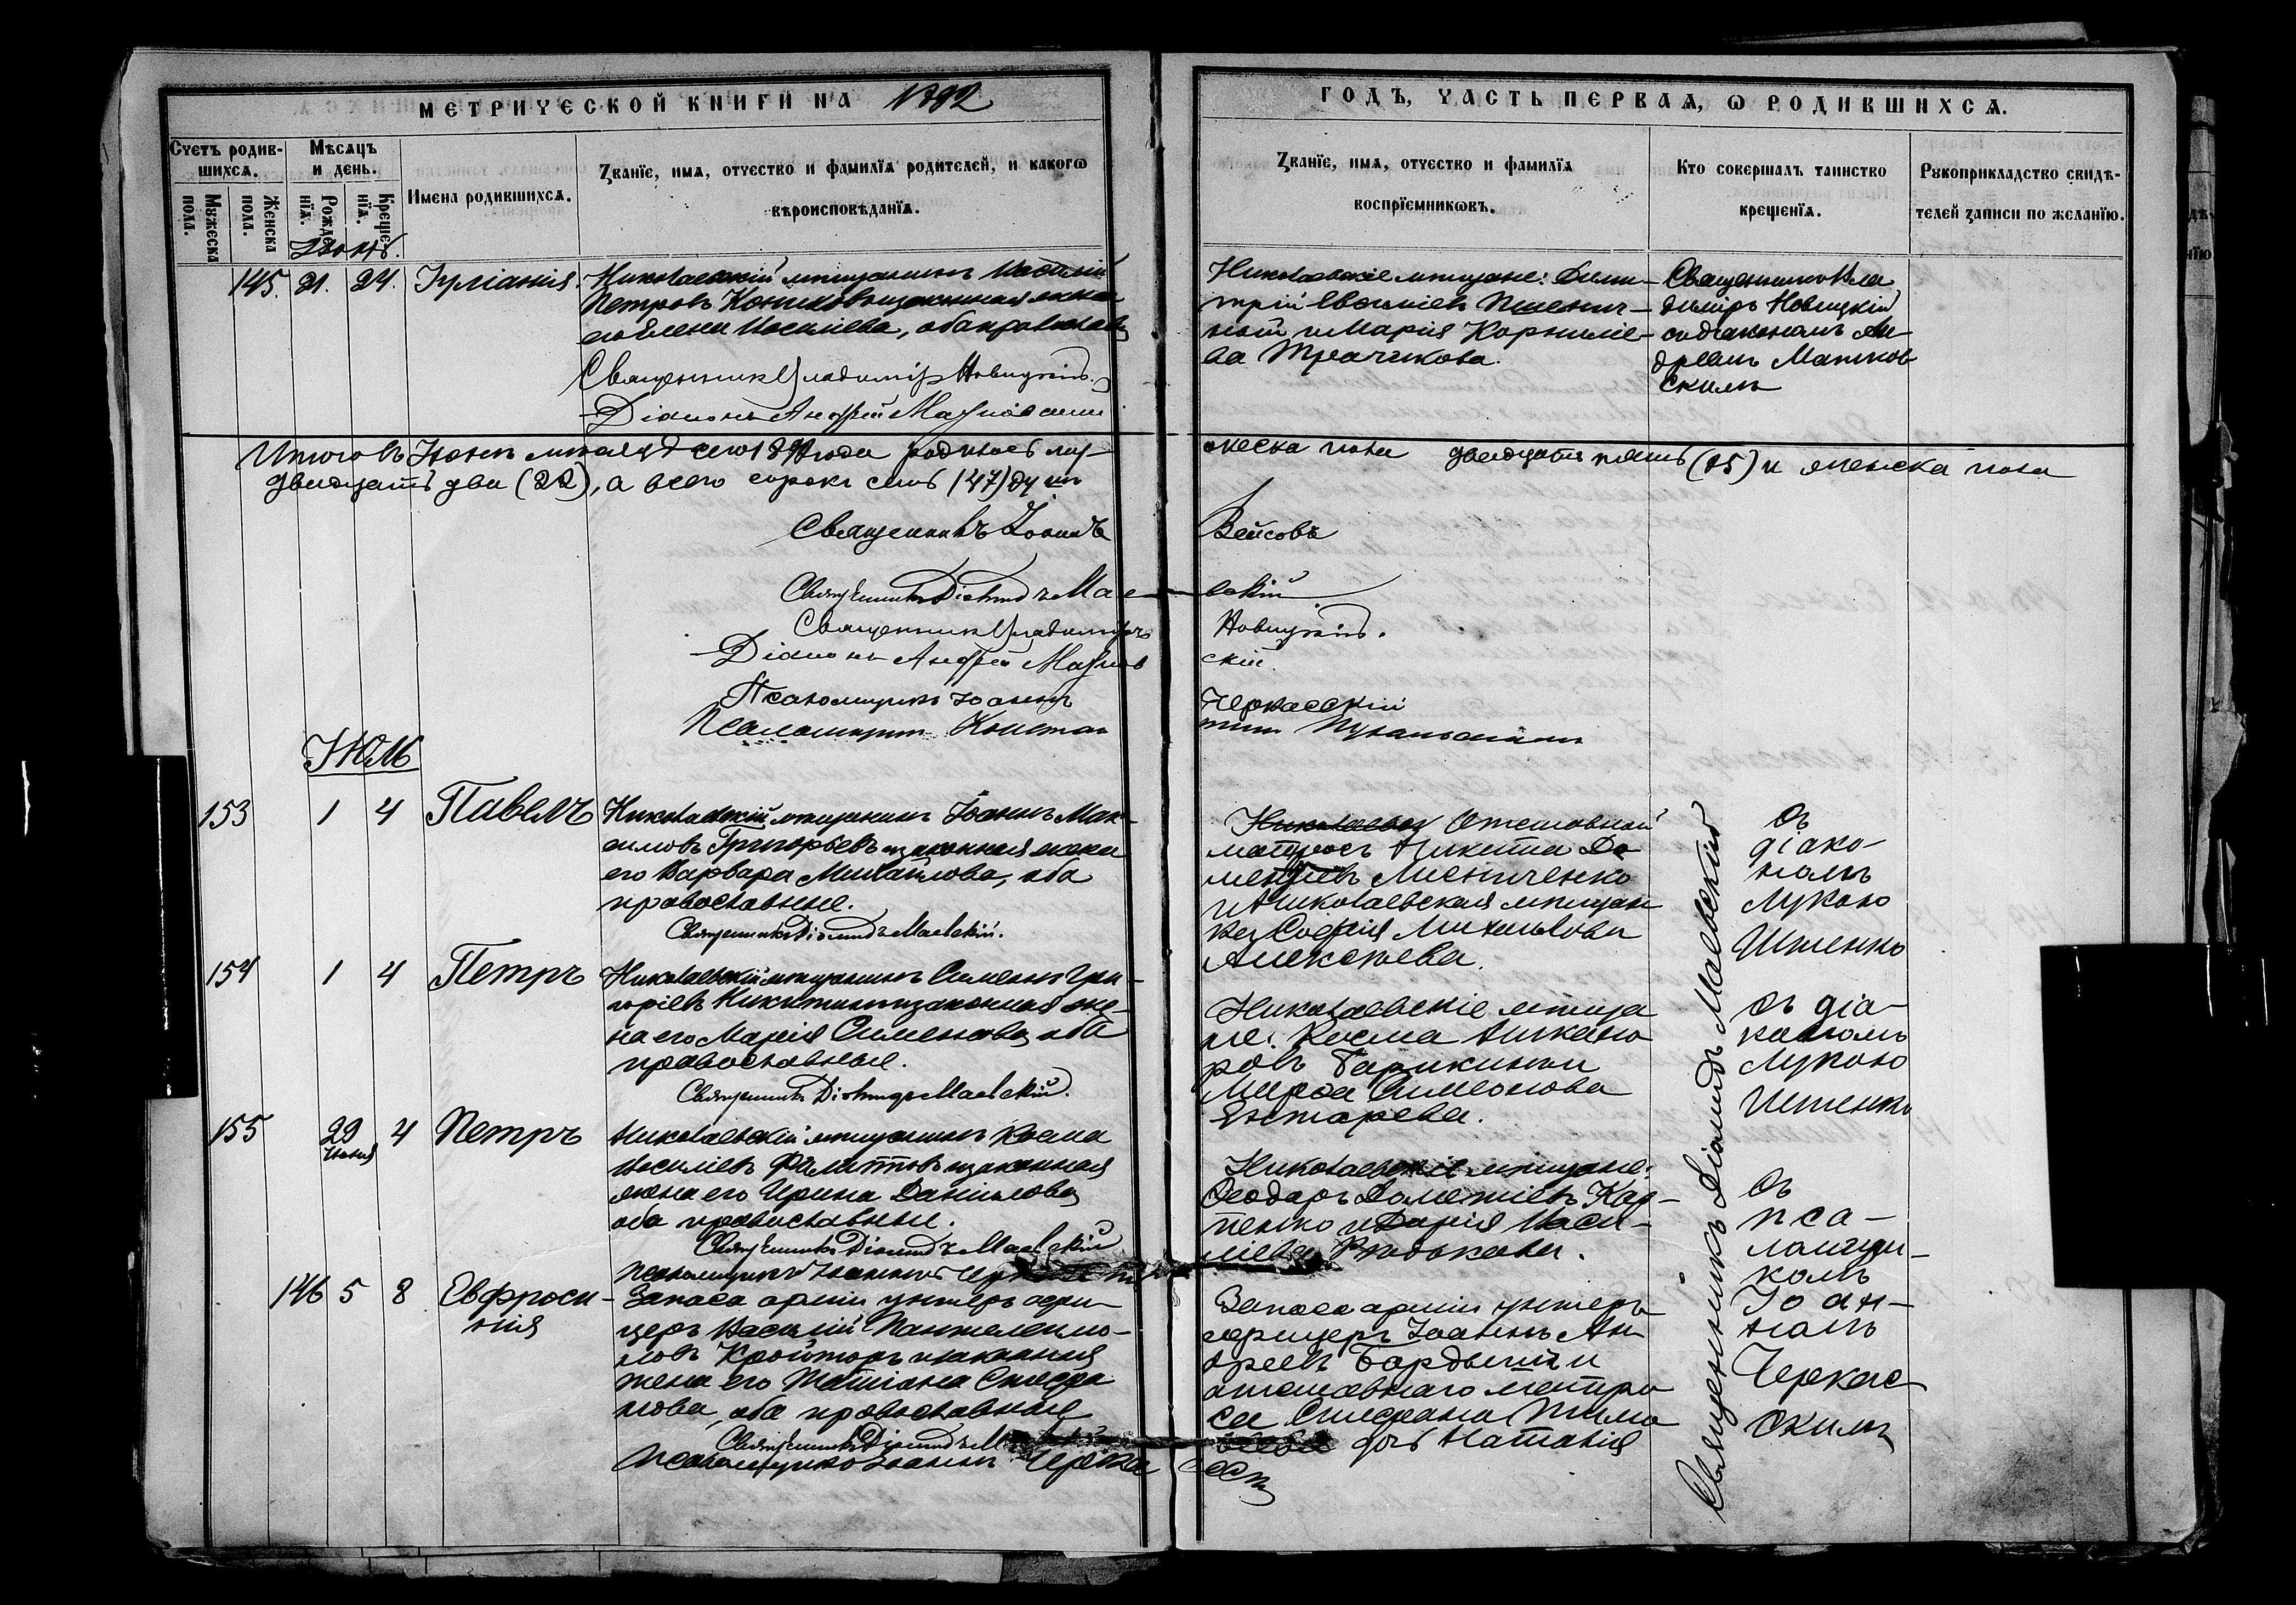 МЕТРИЧЕСКОЙ КНИГИ НА 1892
ГОДЪ, ЧАСТЬ ПЕРВАѦ, Ѡ РОДИВШИХСѦ.
Счетъ родив-
шихсѧ.
Мужеска
пола.
Женска
пола.
Мѣсѧцъ
и день.
Рожде
нїѧ.
Креще
нїѧ.
Имена родившихсѧ.
Званїе, имѧ, отчество и фамилїѧ родителей, и какогѡ
вѣроисповѣданїѧ.
Званїе, имѧ, отчество и фамилїѧ
воспрїемникѡвъ.
Кто совершалъ таинство
крещенїѧ.
Рѹкоприкладство свидѣ-
телей записи по желанїю.
145. 21. 24. Іуліанія.
Николаевскій мѣщанинъ Василій
Петровъ и законная жена
его Елена Васильева, оба православн
Священникъ Владиміръ Новицкій
Діаконъ Андрей
Николаевскіе мѣщане: Дими-
трій Евѳиміевъ Пшенич-
ный и Марія Корниліе-
ва Трачикова.
Священникъ Вла
диміръ Новицкій
съ діакономъ Ан-
дреемъ Матков
скимъ
Итого въ Іюнѣ мѣсяцѣ сего 1892 года родилось му-
жеска пола двадцать пять (25) и женска пола
двадцать два (22), а всего сорокъ семь (47) душъ
Священникъ Іоаннъ Вейсовъ
Священникъ Діомидъ Маевскій
Священникъ Владиміръ Новицкій.
Діаконъ Андрей скій
Псаломщикъ Іоаннъ Черкасскій
Псаломщикъ Констан тин
ІЮЛЬ
153 1 4 Павелъ
Николаевскій мѣщанинъ Іоаннъ Мак-
симовъ Григорьевъ и законная жена
его Варвара Михайлова, оба
православные.
Священникъ Діомидъ Маевскій.
Отставной
матросъ Никита До
ментіевъ
и Николаевская мѣщан
ка Софія Михайлова
Алексѣева.
Съ
діако-
номъ
Лукою
Ищенко
154 1 4 Петръ
Николаевскій мѣщанинъ Симеонъ Гри-
горіевъ Никитинъ и законная же-
на его Марія Симеонова, оба
православные.
Священникъ Діомидъ Маевскій.
Николаевскіе мѣща
не: Косма Никано
ровъ Барикинъ и
Симеонова
Съ діа-
кономъ
Лукою
Ищенко
155 29 4 Петръ
Іюня
Николаевскій мѣщанинъ Косма
Василіевъ Филатовъ и законная
жена его Ирина Даніилова,
оба православные.
Священникъ Діомидъ Маевскій
Псаломщикъ Іоаннъ
Николаевскіе мѣщане:
Ѳеодоръ Дометіевъ Кар-
пенко и Дарія Васи-
лева
Съ
пса-
ломщи-
комъ
Іоан-
номъ
Черкас
скимъ
146 5 8 Евфроси-
нія
Запаса арміи унтеръ офи-
церъ Василій Пантелеимо-
новъ Кройторъ и законная
жена его Татіана Стефа
нова, оба православные
Священникъ Діомидъ
Псаломщикъ Іоаннъ Черка сск
Запаса арміи унтеръ
офицеръ Іоаннъ Ан
дреевъ и
отставнаго матро
са Стефана
дочь Наталія
Священникъ Діомидъ Маевскій